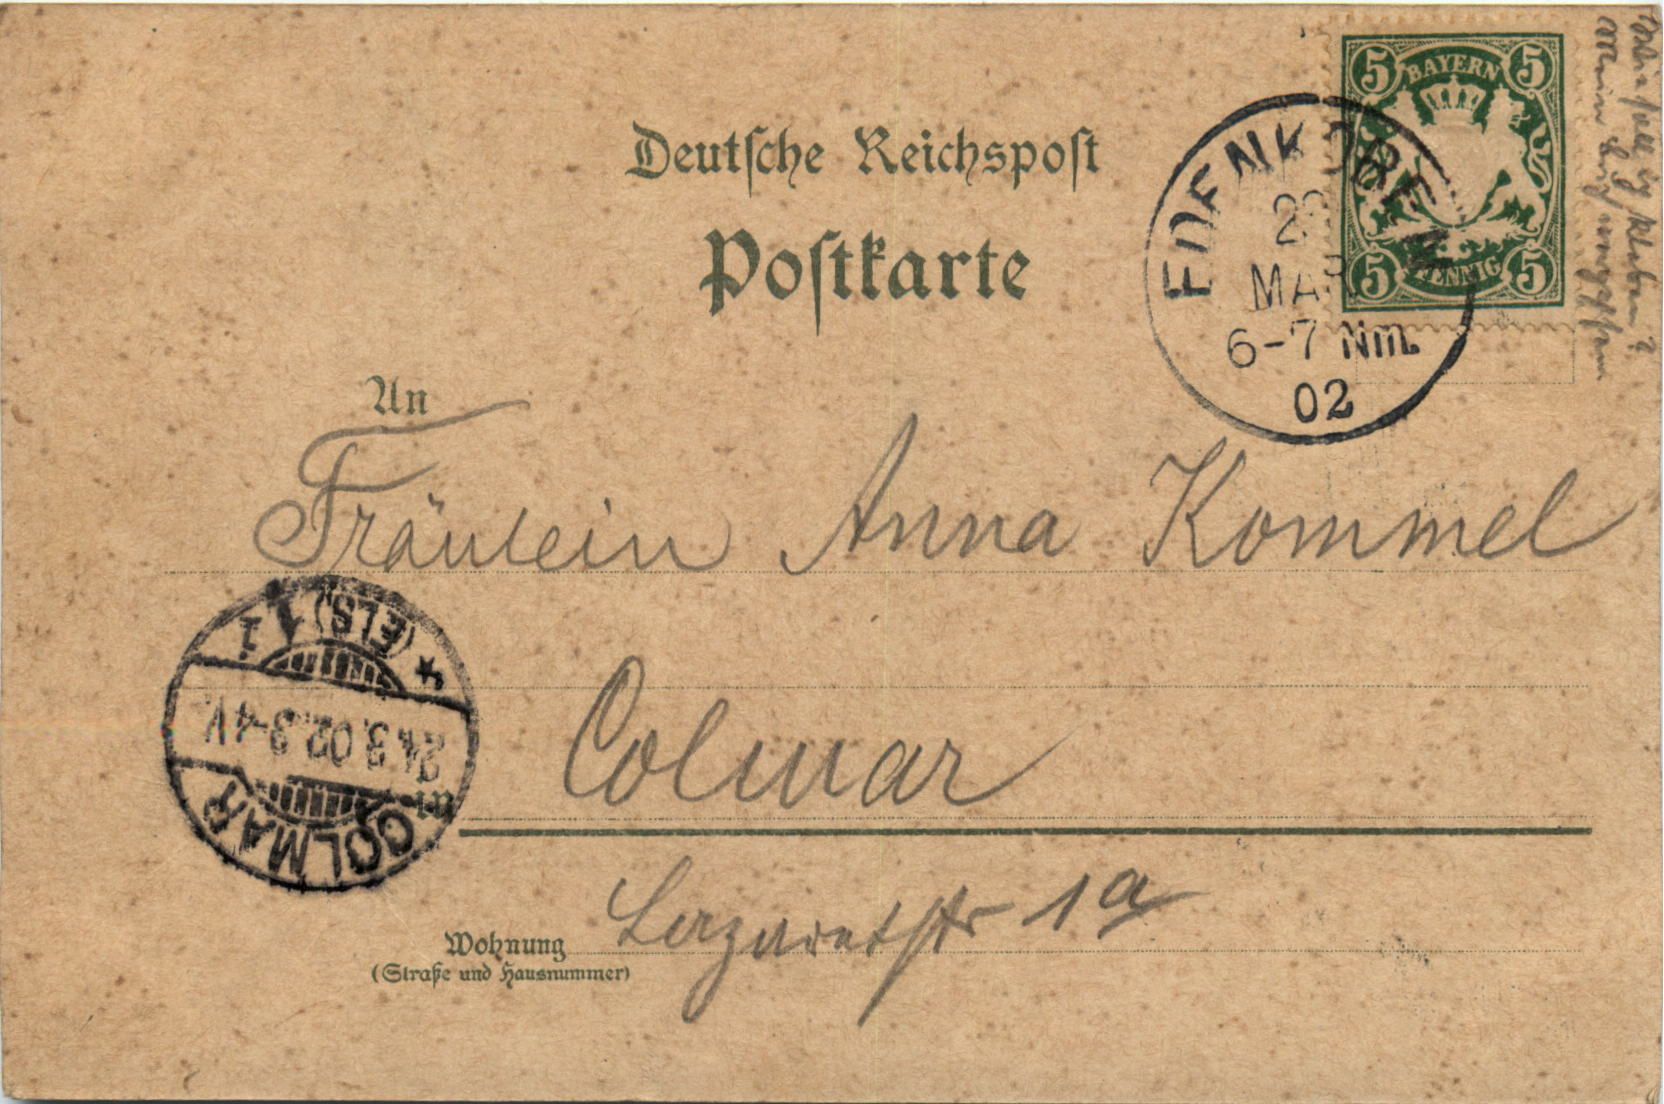 Deutsche Reichspost
Postkarte
5 BAYERN 5
5 PFENNIG 5
EDENKOBEN
MAR
6-7 Nm.
02
An
Fräulein Anna Kommel
Colmar
in
Lazaretstr 1a
Wohnung
(Straße und Hausnummer)
COLMAR
24.3.02.3-4V.
* (ELS) 1 1
kleben?